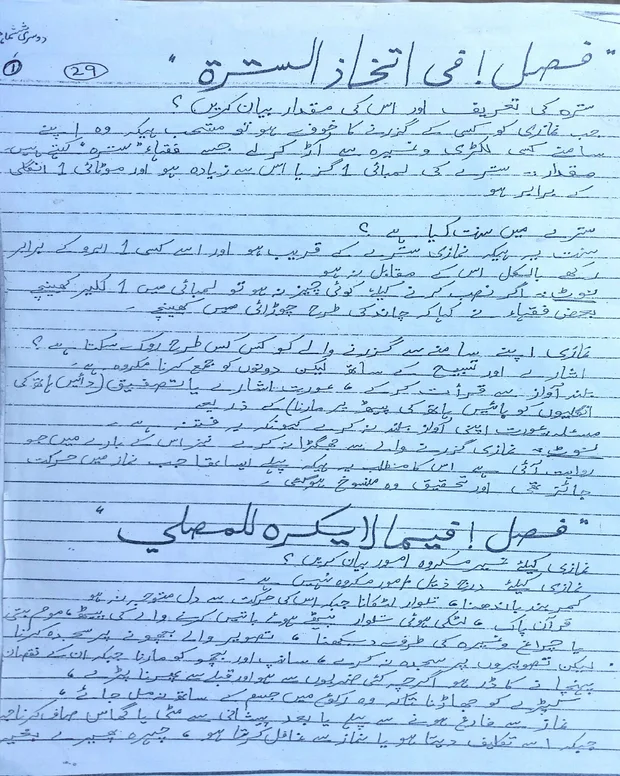 دوسری ششماہی
1
29
"فصل! فی اتخاذ السترۃ"
سترہ کی تعریف اور اس کی مقدار بیان کریں؟
جب نمازی کو کسی کے گزرنے کا خوف ہو تو مستحب ہیکہ وہ اپنے
سامنے کسی لکڑی وغیرہ سے آڑ کرلے جسے فقہاء "سترہ" کہتے ہیں۔
مقدار:۔ سترے کی لمبائی 1 گز یا اس سے زیادہ ہو اور موٹائی 1 انگلی
کے برابر ہو
سترے میں سنت کیا ہے؟
سنت یہ ہیکہ نمازی سترے کے قریب ہو اور اسے کسی 1 ابرو کے برابر
رکھے بالکل اس کے مقابل نہ ہو
نوٹ:۔ اگر نصب کرنے کیلئے کوئی چیز نہ ہو تو لمبائی میں 1 لکیر کھینچے
بعض فقہاء نے کہا کہ چاند کی طرح چوڑائی میں کھینچے۔
نمازی اپنے سامنے سے گزرنے والے کو کس کس طرح روک سکتا ہے؟
اشارے اور تسبیح کے ساتھ لیکن دونوں کو جمع کرنا مکروہ ہے۔
بلند آواز سے قرأت کرکے، عورت اشارے یا تصفیق (دائیں ہاتھ کی
انگلیوں کو بائیں ہاتھ کی پیٹھ پر مارنا) کے ذریعے
مسئلہ: عورت اپنی آواز بلند نہ کرے کیونکہ یہ فتنہ ہے۔
نوٹ:۔ نمازی گزرنے والے سے جھگڑا نہ کرے نیز اس کے بارے میں جو
روایت آئی ہے اس کا مطلب یہ ہیکہ پہلے ایسا تھا جب نماز میں حرکت
جائز تھی اور تحقیق وہ منسوخ ہوگئی۔
"فصل! فیما لا یکرہ للمصلی"
نمازی کیلئے غیر مکروہ امور بیان کریں؟
نمازی کیلئے درج ذیل امور مکروہ نہیں ہے۔
کمر بند باندھنا، تلوار لٹکانا جبکہ اس کی حرکت سے دل متوجہ نہ ہو
قرآن پاک، لٹکی ہوئی تلوار بیٹھے ہوئے باتیں کرنے والے کی پیٹھ، موم بتی
یا چراغ وغیرہ کی طرف دیکھنا، تصویر والے بچھونے پر سجدہ کرنا
لیکن تصویروں پر سجدہ نہ کرے، سانپ اور بچھو کو مارنا جبکہ ان کے نقصان
پہنچانے کا ڈر ہو اگرچہ کئی ضربوں سے ہو اور قبلے سے پھرنا پڑے،
کپڑے کو جھاڑنا تاکہ وہ رکوع میں جسم کے ساتھ نہ مل جائے،
نماز سے فارغ ہونے سے پہلے یا بعد پیشانی سے مٹی یا گھاس صاف کرنا
جبکہ اسے تکلیف دیتا ہو یا نماز سے غافل کرتا ہو، چہرہ پھیرے بغیر